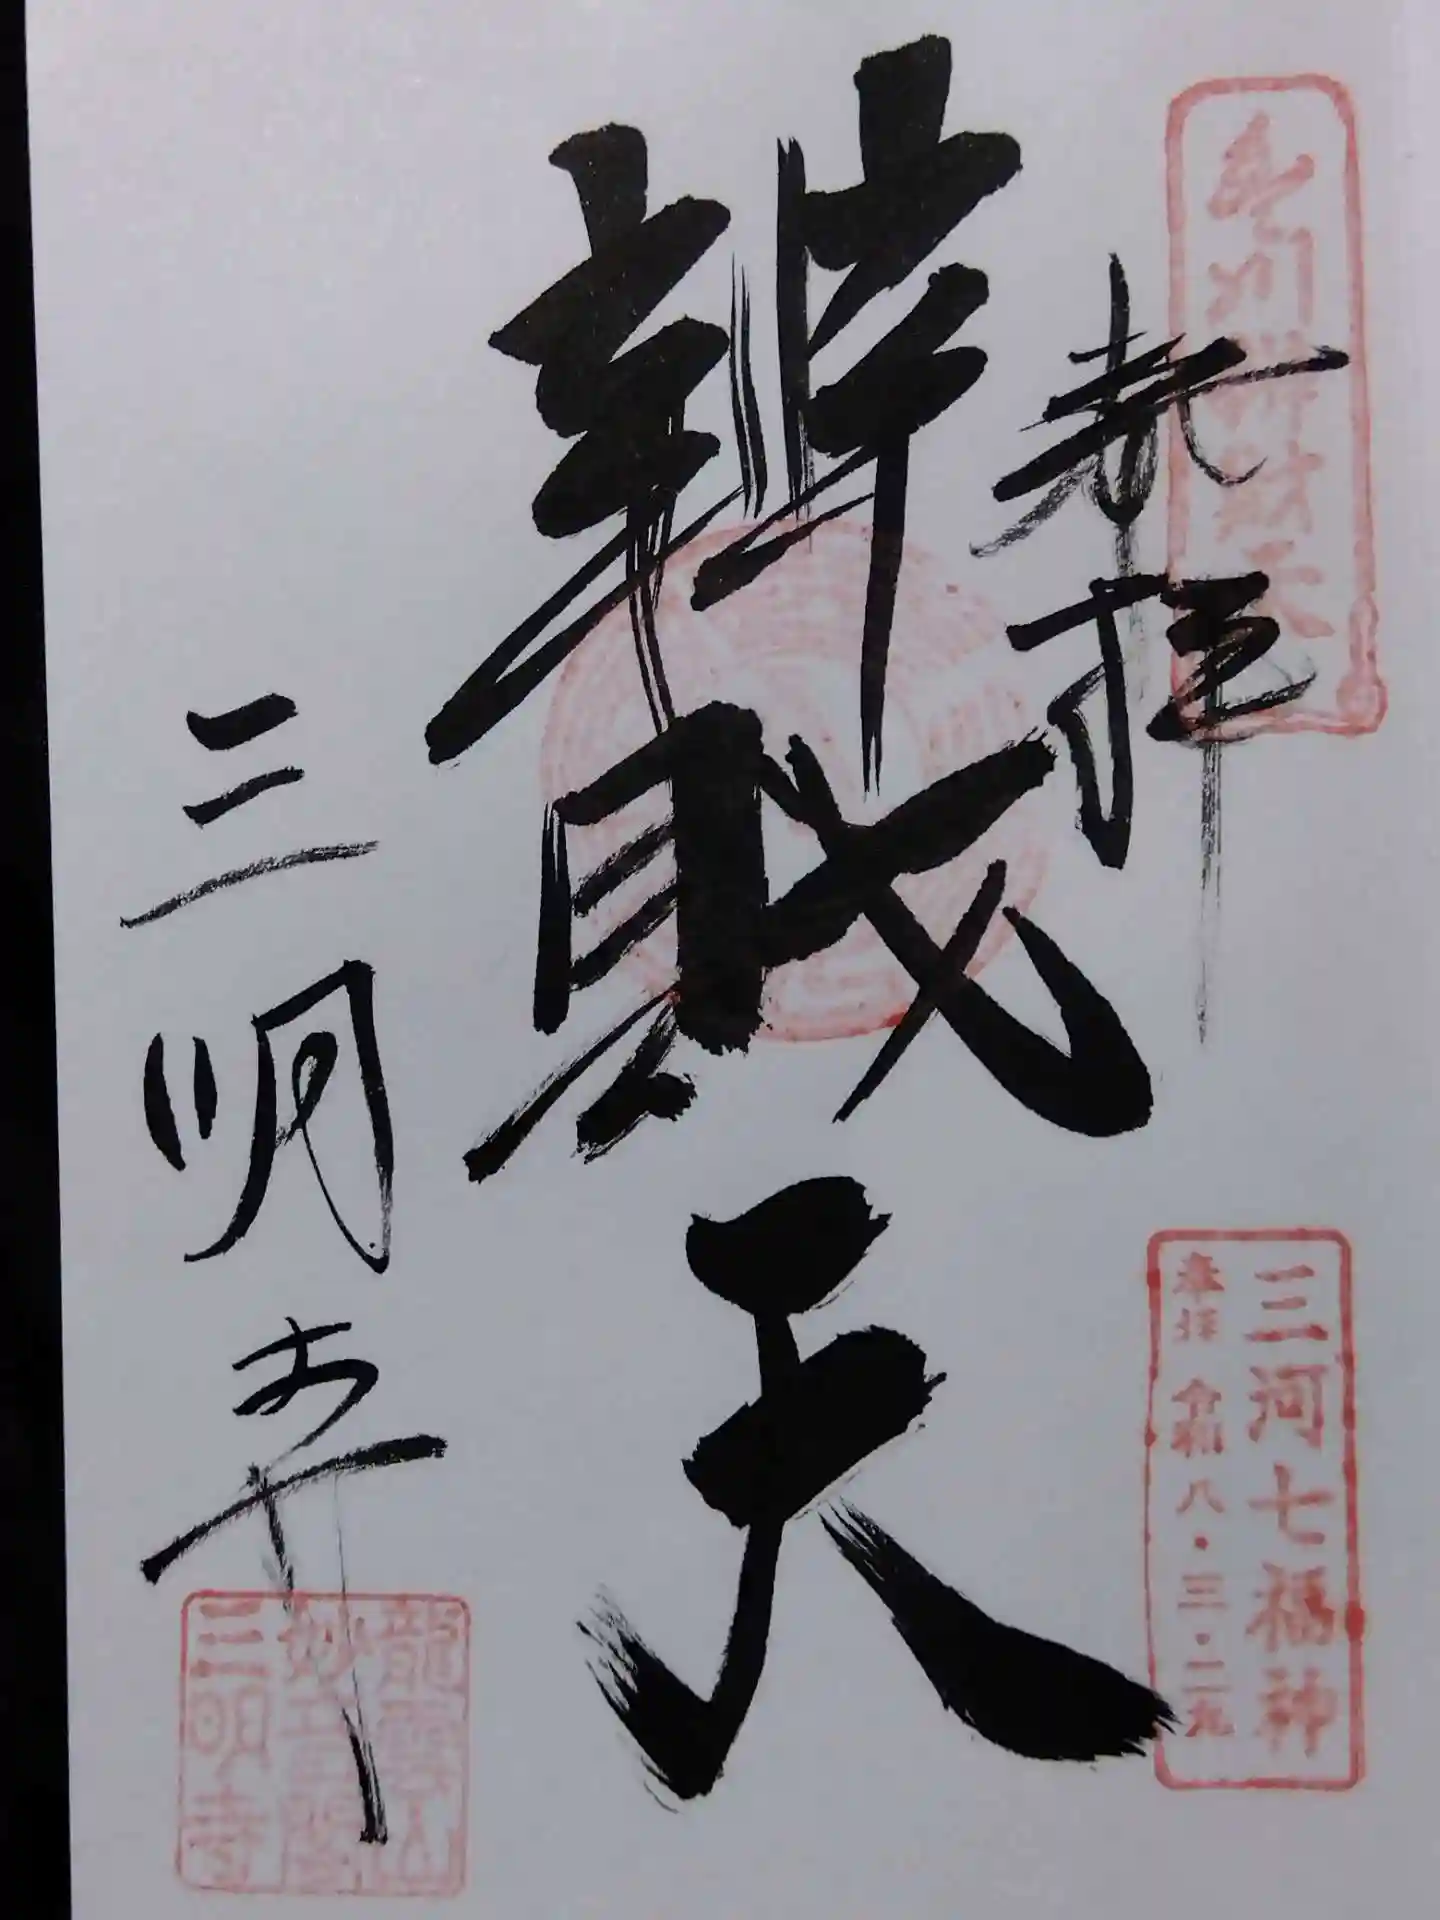 豊川辨財天
奉拝
三河七福神
奉拝 令和八・三・二九
辨財天
三明寺
龍雲山
妙音閣
三明寺